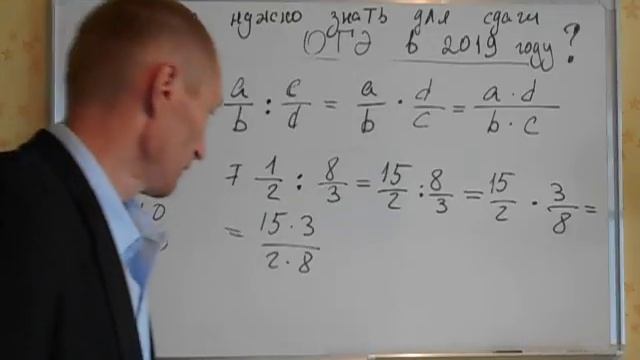 нужно знать для сдачи
ОГЭ в 2019 году?
a/b : c/d = a/b · d/c = a·d/b·c
7 1/2 : 8/3 = 15/2 : 8/3 = 15/2 · 3/8 =
= 15·3/2·8